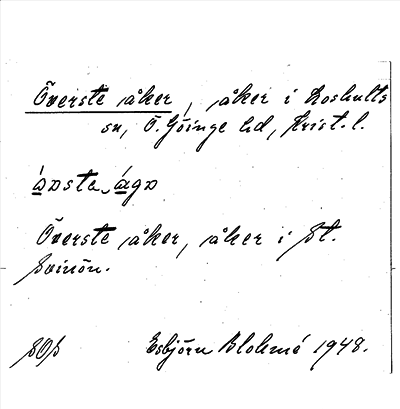 Överste åker, åker i Loshults
sn, Ö. Göinge hd, Krist. l.
Överste åker, åker i St.
Svinön.
Esbjörn Blohmé 1948.